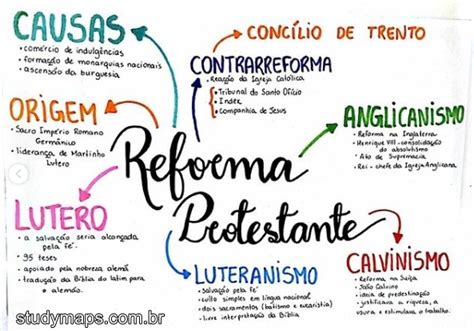 CAUSAS
• comércio de indulgências
• formação de monarquias nacionais
• ascensão da burguesia
CONCÍLIO DE TRENTO
CONTRARREFORMA
• Reação da Igreja Católica
• Tribunal do Santo Ofício
• Index
• Companhia de Jesus
ORIGEM
• Sacro Império Romano
Germânico
• liderança de Martinho
Lutero
ANGLICANISMO
• Reforma na Inglaterra
• Henrique VIII - consolidação
do absolutismo
• Ato de Supremacia
• Rei - chefe da Igreja Anglicana
Reforma
Protestante
LUTERO
• a salvação seria alcançada
pela fé.
• 95 teses
• apoiado pela nobreza alemã
• tradução da Bíblia do latim para
o alemão.
LUTERANISMO
• Salvação pela fé
• culto simples em língua nacional
• dois sacramentos (batismo e eucaristia)
• livre interpretação da Bíblia
CALVINISMO
• Reforma na Suíça
• João Calvino
• ideia de predestinação
• justificava a riqueza, a
usura, o trabalho
studymaps.com.br